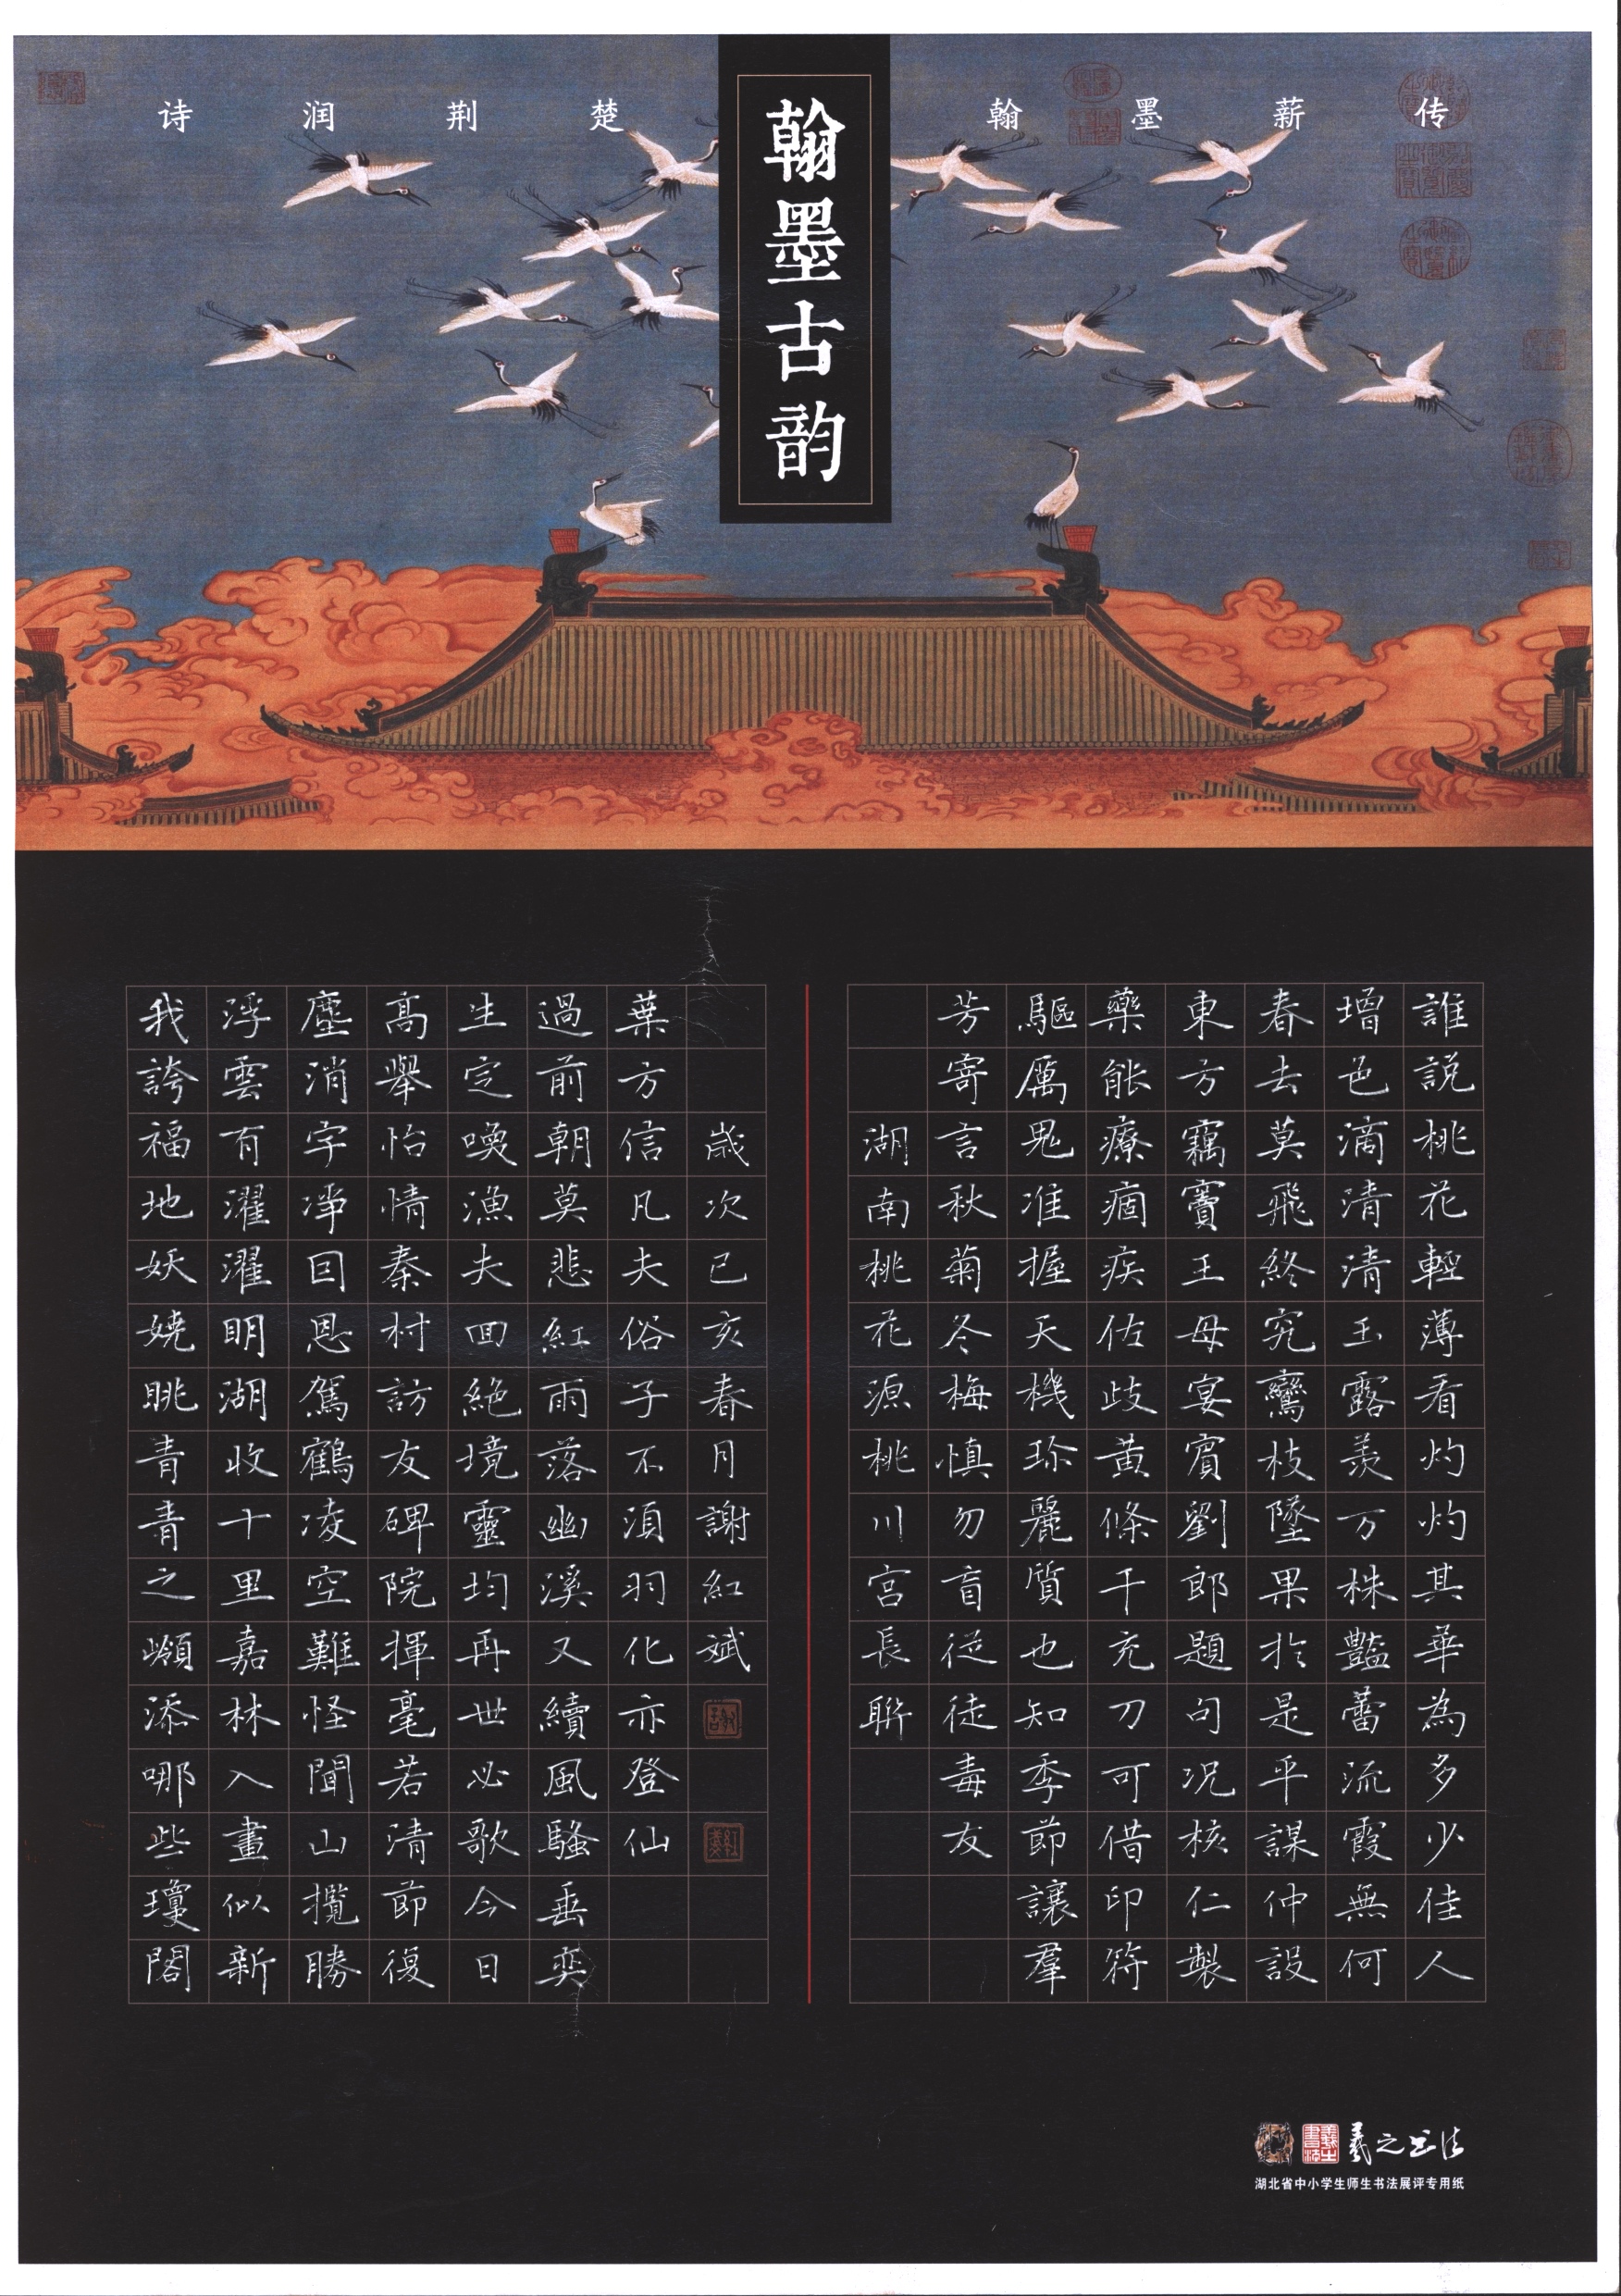 诗润荆楚
翰墨薪传
翰墨古韵
誰説桃花輕薄看灼灼其華為多少佳人
增色滴清清玉露羨万株豔蕾流霞無何
春去莫飛終究鸞枝墜果於是乎謀仲設
東方竊寶王母宴賓劉郎題句况核仁製
藥能療痼疾佐歧黃條干充刀可借印符
驅厲鬼准握天機珍麗質也知季節讓羣
芳寄言秋菊冬梅慎勿盲從徒毒友
湖南桃花源桃川宫長聨
我誇福地妖嬈眺青青之添哪些瓊閣
浮雲有濯濯明湖收十里嘉林入畫似新
塵消宇淨回恩駕鶴凌空難怪聞山攬勝
高舉怡情秦村訪友碑院揮毫若清節復
生定喚漁夫回絕境靈均再世必歌今日
過前朝莫悲紅雨落幽溪又續風騷垂奕
葉方信凡夫俗子不須羽化亦登仙
歲次己亥春月謝紅斌
羲之书法
湖北省中小学生师生书法展评专用纸